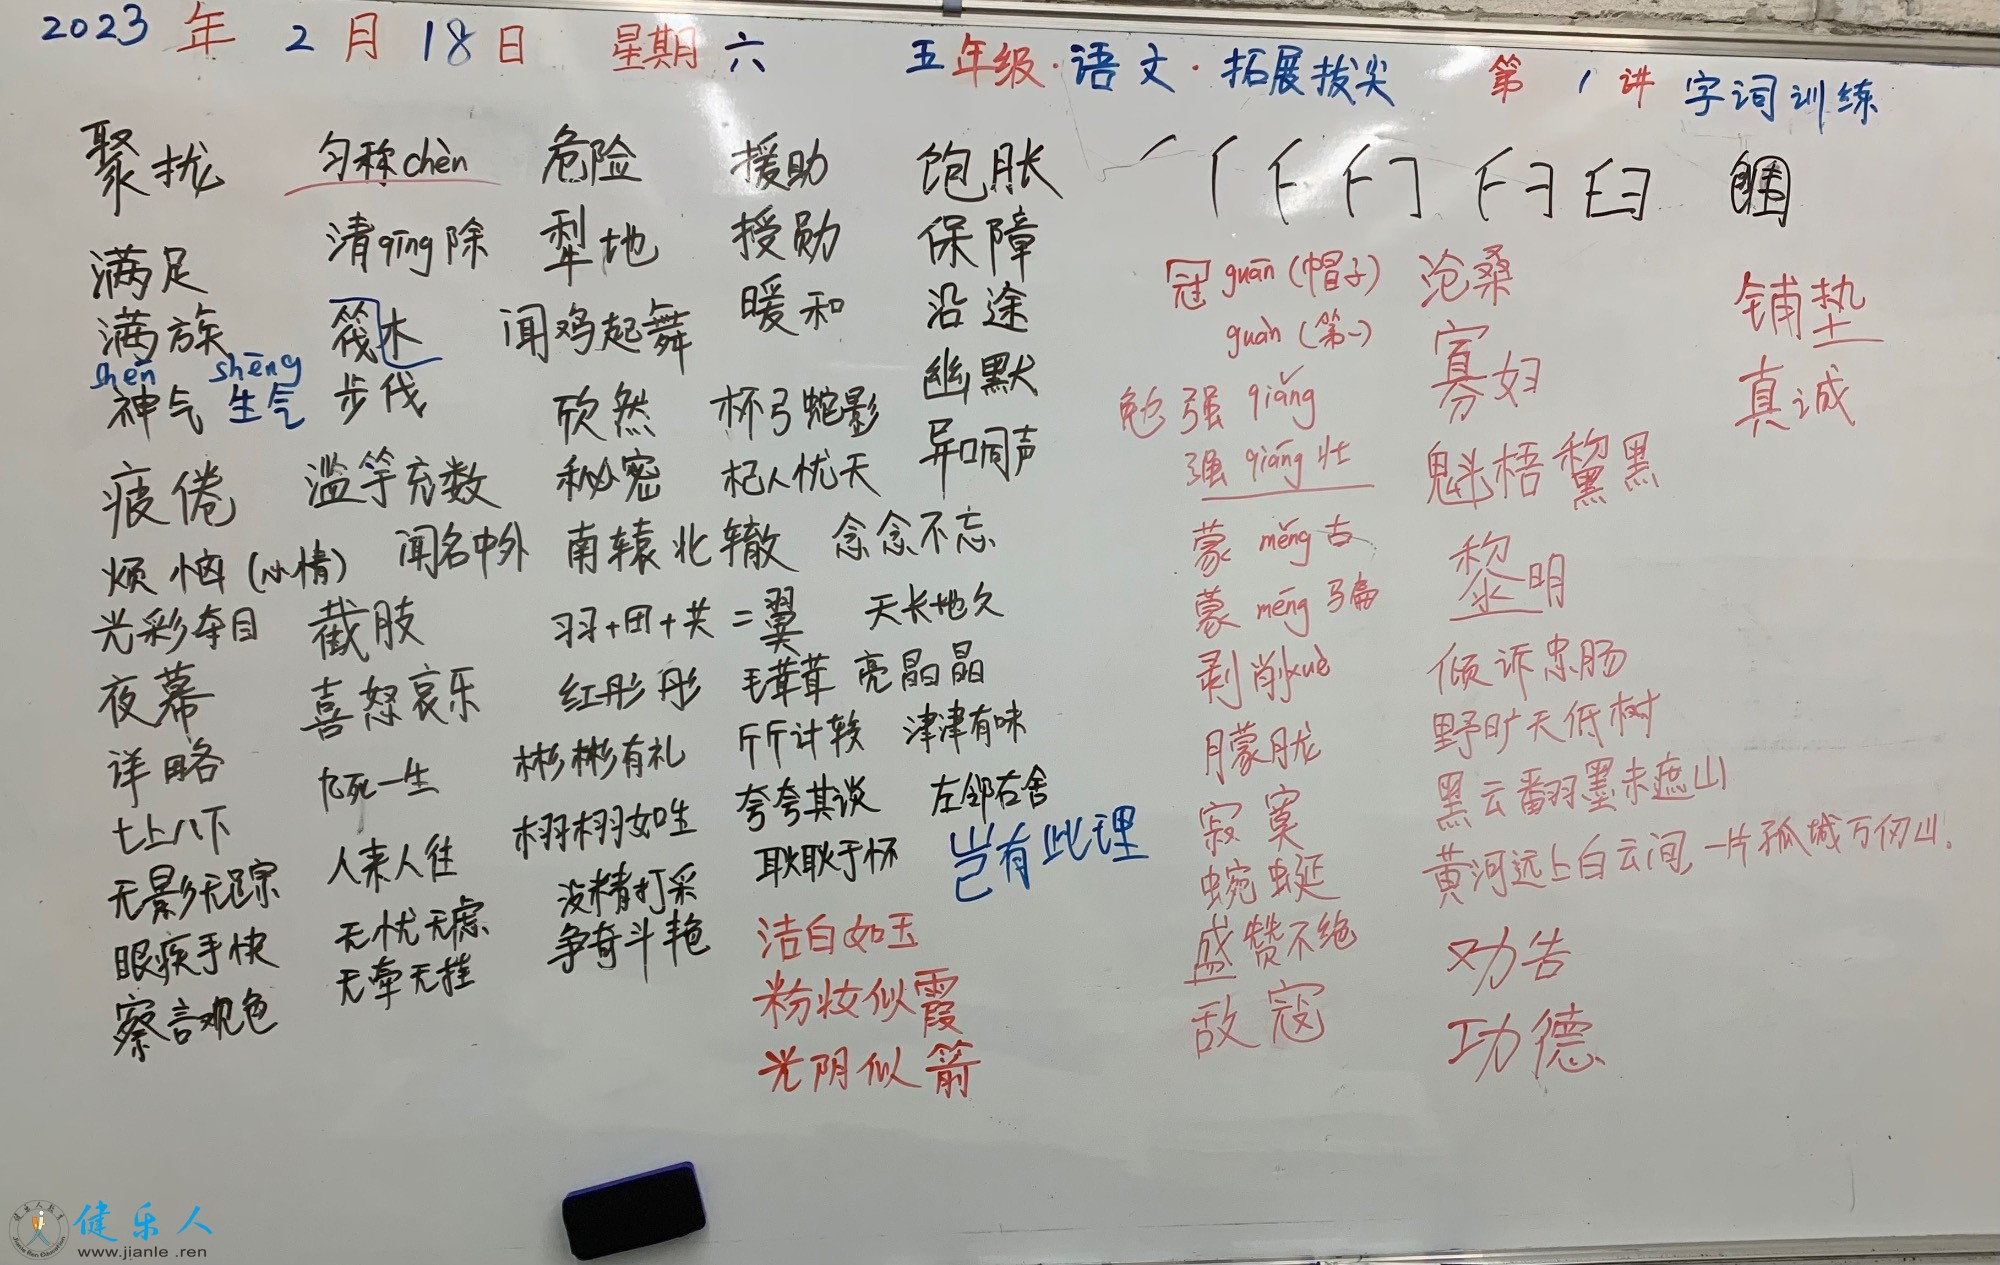 2023年2月18日 星期六 五年级·语文·拓展拔尖 第1讲 字词训练
聚拢
满足
满族
shén shēng
神气 生气
疲倦
烦恼(心情)
光彩夺目
夜幕
详略
七上八下
无影无踪
眼疾手快
察言观色
匀称chèn
清qīng除
筏木
步伐
滥竽充数
闻名中外
截肢
喜怒哀乐
九死一生
人来人往
无忧无虑
无牵无挂
危险
犁地
闻鸡起舞
欣然
秘密
南辕北辙
羽+田+共=翼
红彤彤
彬彬有礼
栩栩如生
没精打采
争奇斗艳
援助
授勋
暖和
杯弓蛇影
杞人忧天
念念不忘
天长地久
毛茸茸 亮晶晶
斤斤计较 津津有味
夸夸其谈 左邻右舍
耿耿于怀 岂有此理
洁白如玉
粉妆似霞
光阴似箭
饱胀
保障
沿途
幽默
异口同声
冠 guān(帽子)
guàn(第一)
勉强 qiǎng
强 qiáng 壮
蒙 měng 古
蒙 mēng 骗
剥削xuē
朦胧
寂寞
蜿蜒
盛赞不绝
敌寇
沧桑
寡妇
魁梧 黧黑
黎明
倾诉衷肠
野旷天低树
黑云翻墨未遮山
黄河远上白云间,一片孤城万仞山.
劝告
功德
铺垫
真诚
健乐人
www.jianle.ren